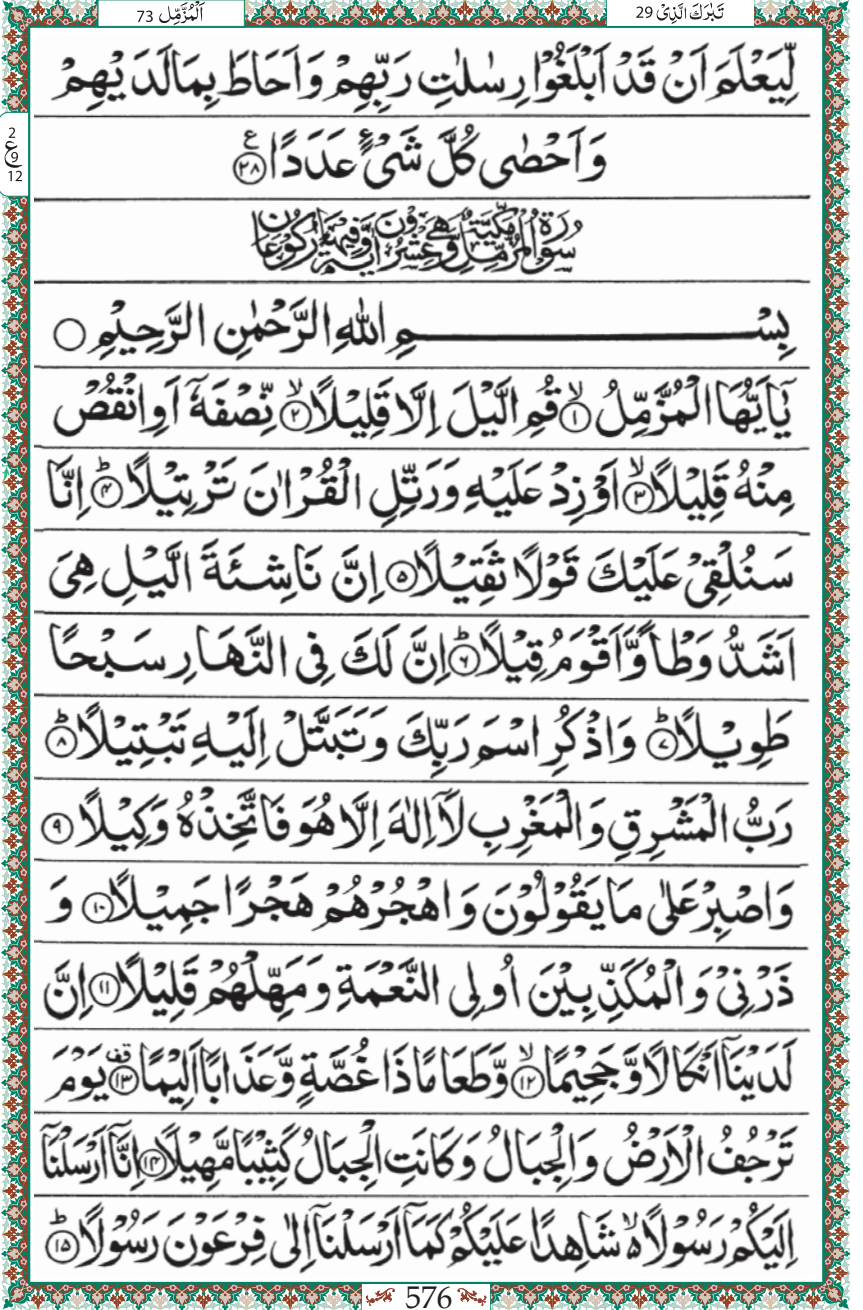 تَبٰرَكَ الَّذِیْ 29
اَلْمُزَّمِّل 73
لِّیَعْلَمَ اَنْ قَدْ اَبْلَغُوْا رِسٰلٰتِ رَبِّهِمْ وَ اَحَاطَ بِمَا لَدَیْهِمْ
2
ع
9
12
وَ اَحْصٰی كُلَّ شَیْءٍ عَدَدًا ﴿۲۸﴾ ع
سُوْرَةُ الْمُزَّمِّلِ مَكِّیَّةٌ وَّهِیَ عِشْرُوْنَ اٰیَةً وَّفِیْهَا رُكُوْعَانِ
بِسْمِ اللّٰهِ الرَّحْمٰنِ الرَّحِیْمِ
یٰۤاَیُّهَا الْمُزَّمِّلُ ۙ﴿۱﴾ قُمِ الَّیْلَ اِلَّا قَلِیْلًا ۙ﴿۲﴾ نِّصْفَهٗۤ اَوِ انْقُصْ
مِنْهُ قَلِیْلًا ۙ﴿۳﴾ اَوْ زِدْ عَلَیْهِ وَ رَتِّلِ الْقُرْاٰنَ تَرْتِیْلًا ؕ﴿۴﴾ اِنَّا
سَنُلْقِیْ عَلَیْكَ قَوْلًا ثَقِیْلًا ﴿۵﴾ اِنَّ نَاشِئَةَ الَّیْلِ هِیَ
اَشَدُّ وَطْاً وَّ اَقْوَمُ قِیْلًا ؕ﴿۶﴾ اِنَّ لَكَ فِی النَّهَارِ سَبْحًا
طَوِیْلًا ؕ﴿۷﴾ وَ اذْكُرِ اسْمَ رَبِّكَ وَ تَبَتَّلْ اِلَیْهِ تَبْتِیْلًا ؕ﴿۸﴾
رَبُّ الْمَشْرِقِ وَ الْمَغْرِبِ لَاۤ اِلٰهَ اِلَّا هُوَ فَاتَّخِذْهُ وَكِیْلًا ﴿۹﴾
وَ اصْبِرْ عَلٰی مَا یَقُوْلُوْنَ وَ اهْجُرْهُمْ هَجْرًا جَمِیْلًا ﴿۱۰﴾ وَ
ذَرْنِیْ وَ الْمُكَذِّبِیْنَ اُولِی النَّعْمَةِ وَ مَهِّلْهُمْ قَلِیْلًا ﴿۱۱﴾ اِنَّ
لَدَیْنَاۤ اَنْكَالًا وَّ جَحِیْمًا ۙ﴿۱۲﴾ وَّ طَعَامًا ذَا غُصَّةٍ وَّ عَذَابًا اَلِیْمًا ۗقف﴿۱۳﴾ یَوْمَ
تَرْجُفُ الْاَرْضُ وَ الْجِبَالُ وَ كَانَتِ الْجِبَالُ كَثِیْبًا مَّهِیْلًا ﴿۱۴﴾ اِنَّاۤ اَرْسَلْنَاۤ
اِلَیْكُمْ رَسُوْلًا ۙ۬ شَاهِدًا عَلَیْكُمْ كَمَاۤ اَرْسَلْنَاۤ اِلٰی فِرْعَوْنَ رَسُوْلًا ؕ﴿۱۵﴾
576